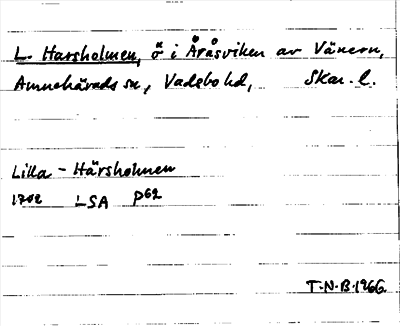 L. Harsholmen, ö i Åråsviken av Vänern,
Amnehärads sn, Vadsbo hd, Skar. l.
Lilla - Härsholmen
1702 LSA P62
T.N.B. 1966.